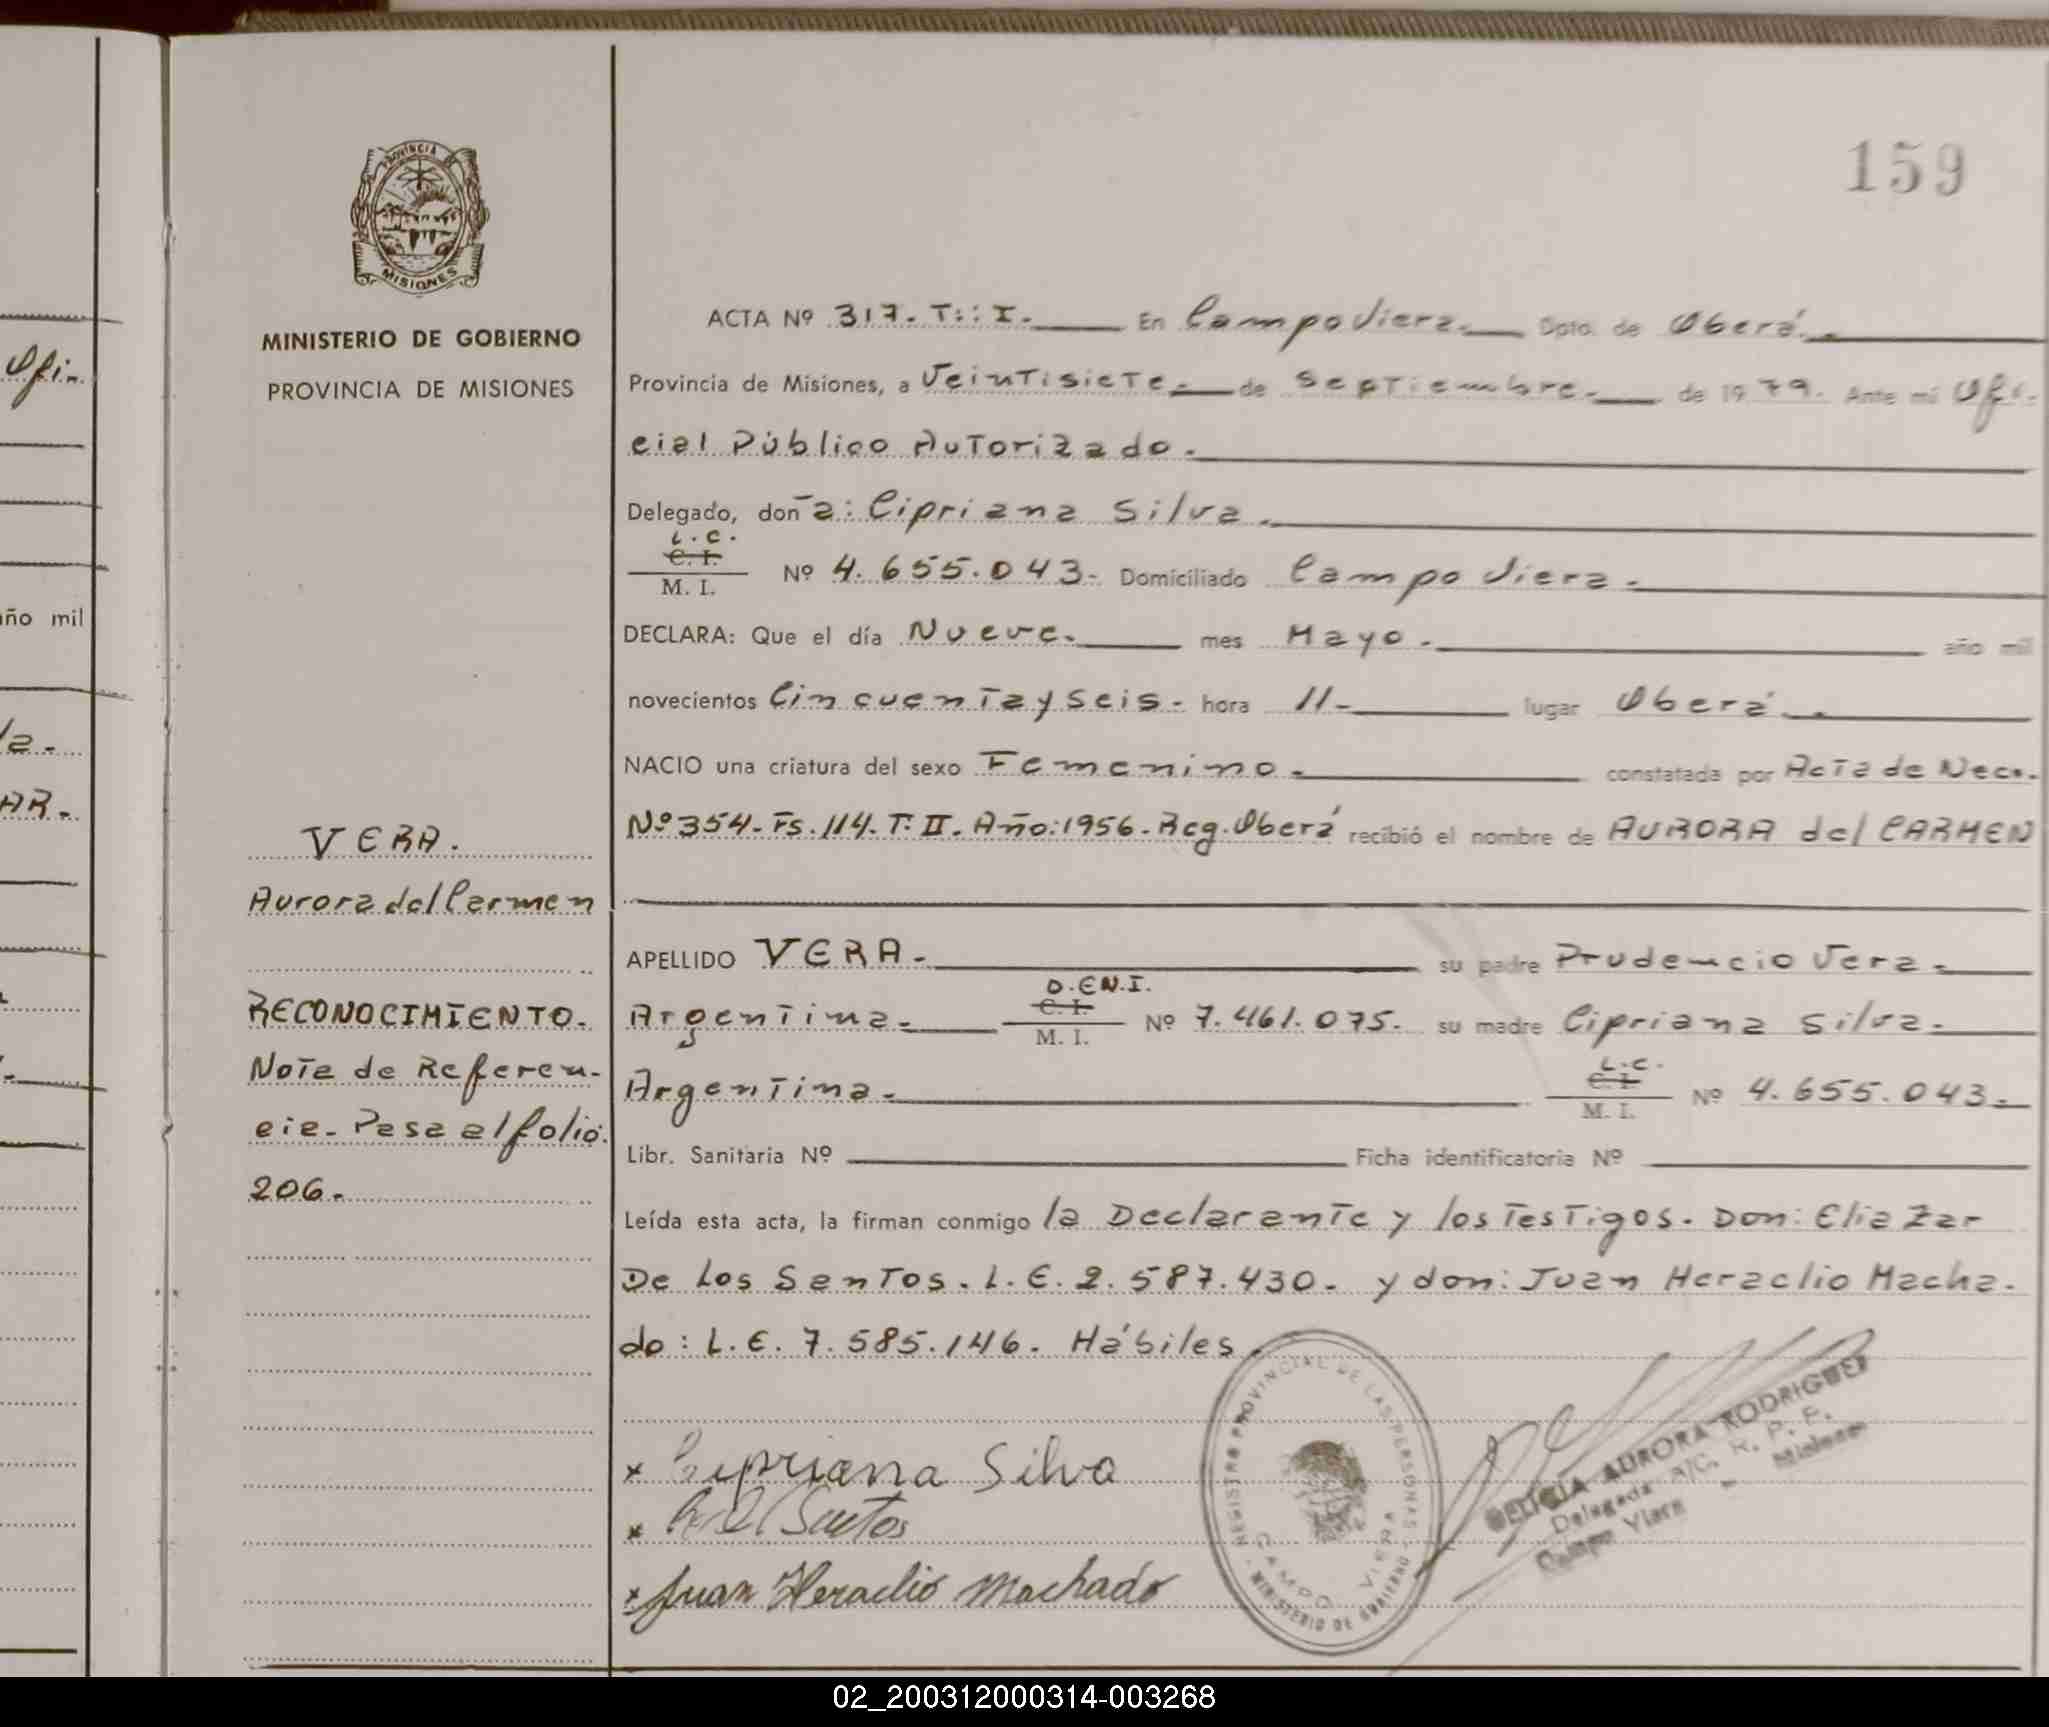 159
PROVINCIA DE
MISIONES
MINISTERIO DE GOBIERNO
PROVINCIA DE MISIONES
VERA.
Aurora del Carmen
RECONOCIMIENTO.
Nota de Referen-
cia. Pasa al folio.
206.
ACTA Nº 317. T:: I. En Campo Viera. Dpto. de Oberá.
Provincia de Misiones, a Veintisiete. de Septiembre. de 1979. Ante mi Ofi-
cial Público Autorizado.
Delegado, doña: Cipriana Silva.
L. C.
C. I.
M. I. Nº 4.655.043- Domiciliado Campo Viera.
DECLARA: Que el día Nueve. mes Mayo. año mil
novecientos Cincuenta y seis. hora 11- lugar Oberá.
NACIO una criatura del sexo Femenino. constatada por Acta de Naco.
Nº 354. Fs. 114. T: II. Año: 1956. Reg. Oberá recibió el nombre de AURORA del CARMEN
APELLIDO VERA. su padre Prudencio Vera.
D.EN.I.
Argentina. C. I. M. I. Nº 7.461.075. su madre Cipriana Silva.
L.C.
Argentina. C. I. M. I. Nº 4.655.043.
Libr. Sanitaria Nº Ficha identificatoria Nº
Leída esta acta, la firman conmigo la Declarante y los Testigos. Don: Eliazar
De Los Santos. L. E. 2.587.430. y don: Juan Heraclio Macha.
do: L. E. 7.585.146. Hábiles.
x Cipriana Silva
x Santos
x Juan Heraclio Machado
REGISTRO PROVINCIAL DE LAS PERSONAS
CAMPO VIERA
MINISTERIO DE GOBIERNO
DELICIA AURORA RODRIGUEZ
Delegada A/C. R. P. P.
Campo Viera - Misiones
Ofi-
año mil
la.
AR.
02_200312000314-003268